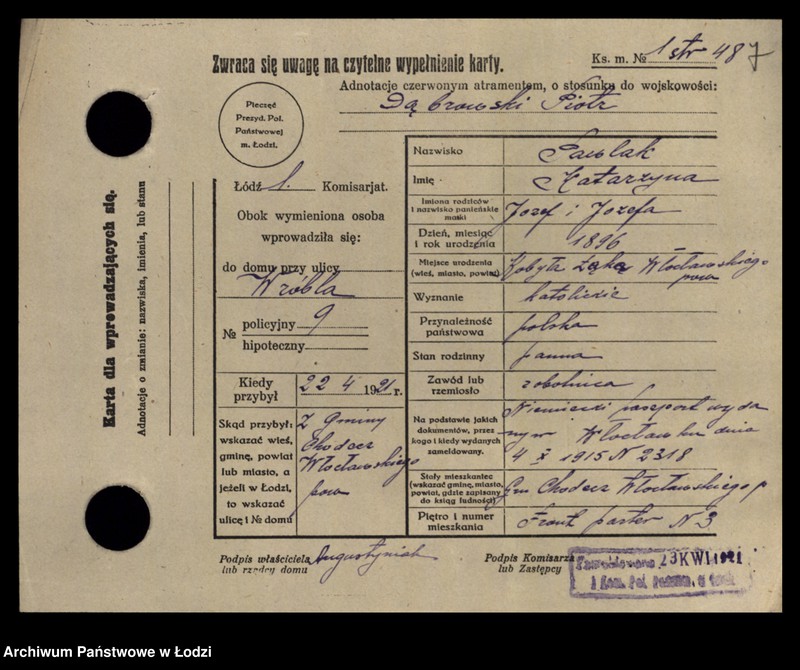 Zwraca się uwagę na czytelne wypełnienie karty.
Ks. m. № 1 str 487
Adnotacje czerwonym atramentem, o stosunku do wojskowości:
Dąbrowski Piotr
Pieczęć
Prezyd. Pol.
Państwowej
m. Łodzi.
Karta dla wprowadzających się.
Adnotacje o zmianie: nazwiska, imienia, lub stanu
Łódź 1. Komisarjat.
Obok wymieniona osoba
wprowadziła się:
do domu przy ulicy
Wróbla
№ policyjny 9
hipoteczny
Kiedy przybył 22 4 1921 r.
Skąd przybył:
wskazać wieś,
gminę, powiat
lub miasto, a
jeżeli w Łodzi,
to wskazać
ulicę i № domu
Z Gminy
Chodecz
Włocławskiego
pow
Nazwisko Pawlak
Imię Katarzyna
Imiona rodziców
i nazwisko panieńskie
matki
Józef i Józefa
Dzień, miesiąc
i rok urodzenia
1896
Miejsce urodzenia
(wieś, miasto, powiat)
Kobyla Łąka Włocławskiego
pow
Wyznanie katolickie
Przynależność
państwowa
polska
Stan rodzinny panna
Zawód lub
rzemiosło
robotnica
Na podstawie jakich
dokumentów, przez
kogo i kiedy wydanych
zameldowany.
Niemiecki paszport wyda
nym Włocławku dnia
4 X 1915 N 2318
Stały mieszkaniec
(wskazać gminę, miasto,
powiat, gdzie zapisany
do ksiąg ludności)
Gm Chodecz Włocławskiego p
Piętro i numer
mieszkania
Front parter N 3
Podpis właściciela
lub rządcy domu
Augustyniak
Podpis Komisarza
lub Zastępcy
Zameldowano 23 KWI 1921
1 Kom. Pol. Państw. w Łodzi
Archiwum Państwowe w Łodzi